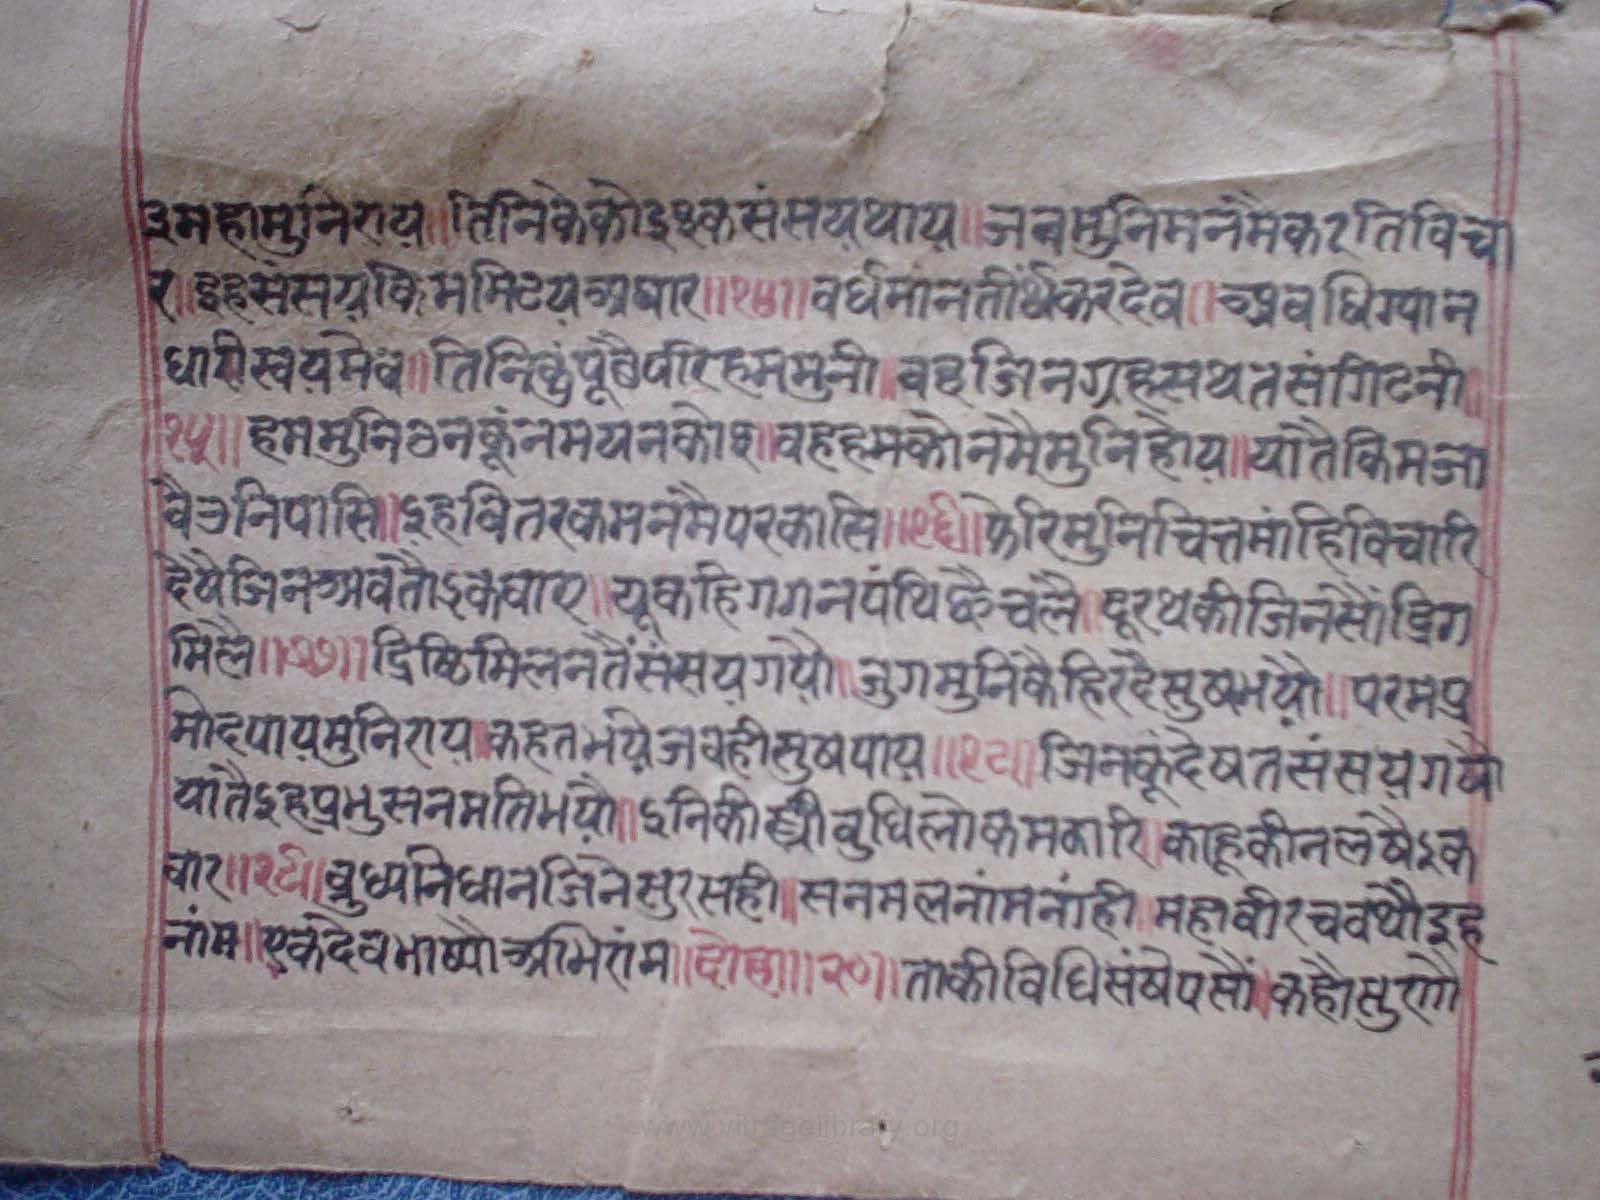 इमहामुनिराय॥तिनिकेकोइइकसंसयथाय॥जबमुनिमनमैकरतिविचा
र॥इहसंसयकिममिटयअबार॥१४॥वर्धमानतीर्थकरदेव॥अवधिग्यान
धारीस्वयमेव॥तिनिकुंपूछैपरिहममुनी॥वहजिनग्रहसथतसंगिटनी॥
१५॥हममुनिठनकूंनमयनकोइ॥वहहमकौनमैमुनिहोय॥यातैकिमजा
वैउनिपासि॥इहवितरकमनमैपरकासि॥१६॥फेरिमुनिचित्तमांहिविचारि
देषेजिनअवतौइकबार॥यूकहिगगनपंथिह्वैचलै॥दूरथकीजिनसौंद्रिग
मिलै॥१७॥द्रिष्ठिमिलनतैंसंसयगयौ॥जुगमुनिकैहिरदैसुषभयौ॥परमप्र
मोदपायमुनिराय॥कहतभयेजबहीसुषपाय॥१८॥जिनकूंदेषतसंसयगयौ
यातैइहप्रभुसनमतिभयौ॥इनिकीश्रीबुधिलोकमकारि॥काहूकीनलषैइक
बार॥१९॥बुध्यनिधाननजिनेसुरसही॥सनमलनांमनांही॥महावीरचवथौइह
नांम॥एकदेवभाष्यौअभिरांम॥दोहा॥२०॥ताकीविधिसंषेपसौं॥कहौसुरणौ
www.vitragelibrary.org